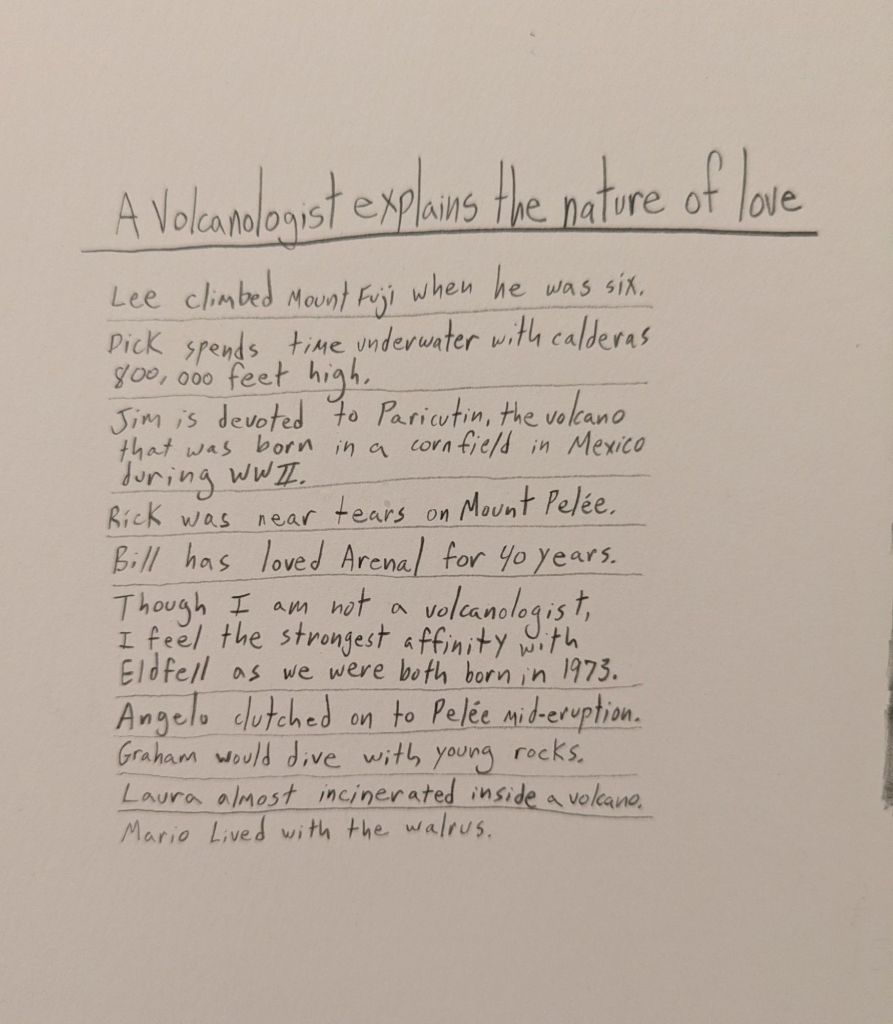 A Volcanologist explains the nature of love
Lee climbed Mount Fuji when he was six.
Dick spends time underwater with calderas
800,000 feet high.
Jim is devoted to Paricutin, the volcano
that was born in a cornfield in Mexico
during WWII.
Rick was near tears on Mount Pelée.
Bill has loved Arenal for 40 years.
Though I am not a volcanologist,
I feel the strongest affinity with
Eldfell as we were both born in 1973.
Angelo clutched on to Pelée mid-eruption.
Graham would dive with young rocks.
Laura almost incinerated inside a volcano.
Mario Lived with the walrus.